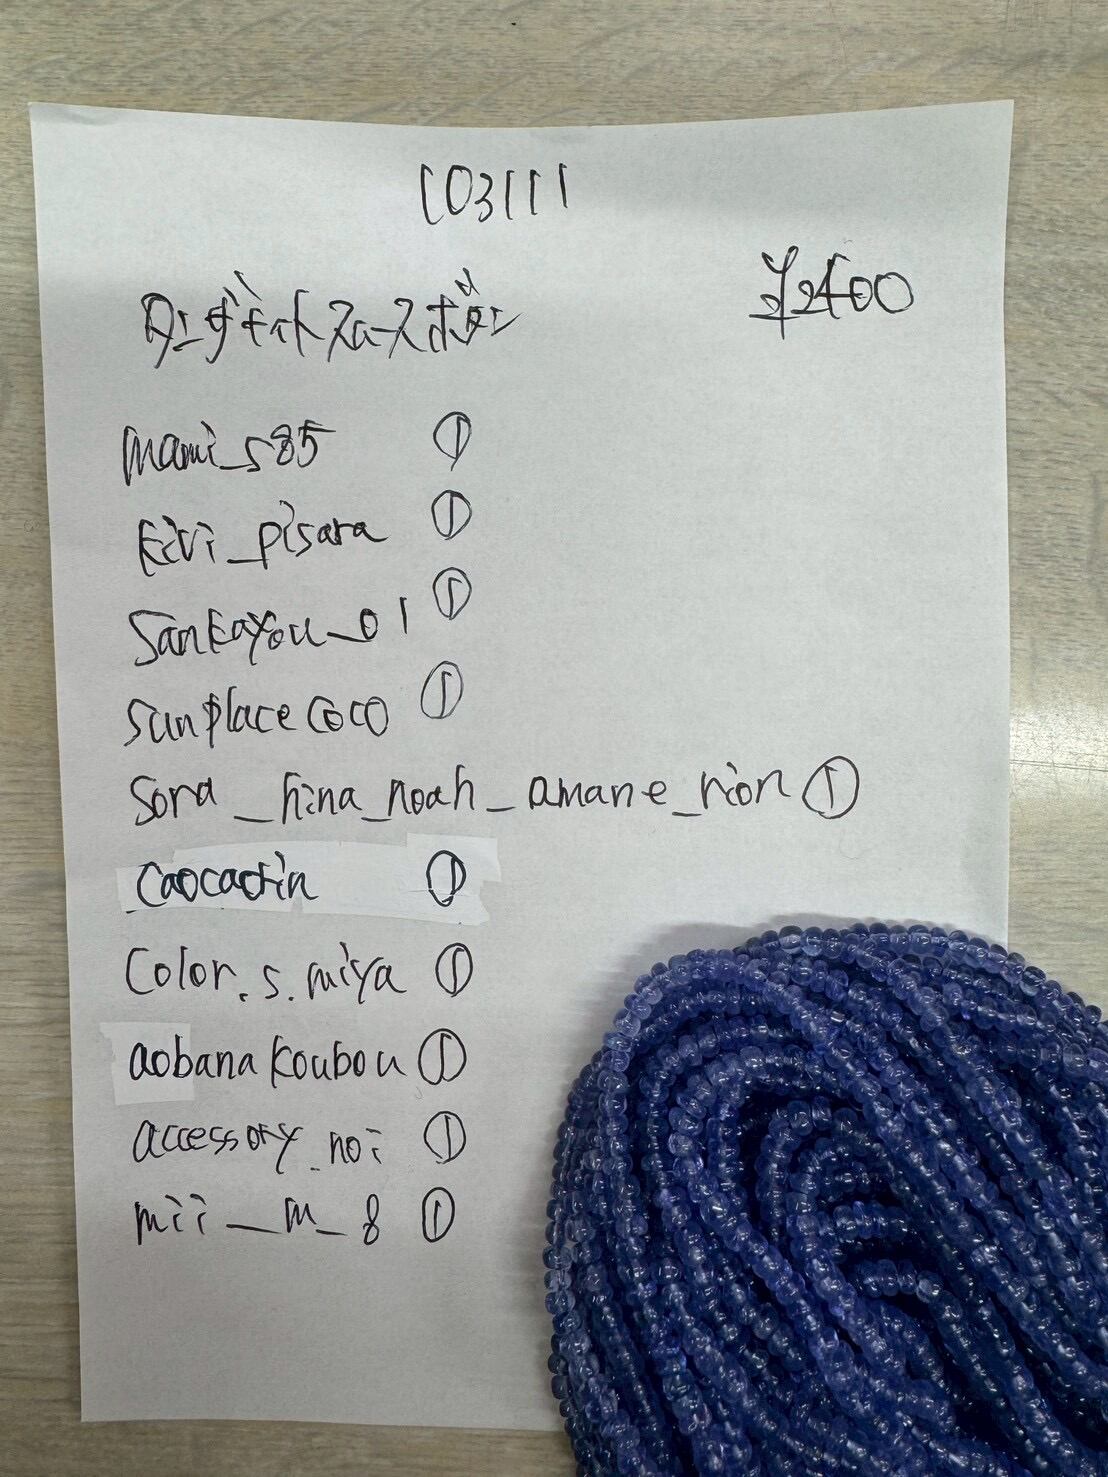 103111
タンザナイトスムースボタン
¥2400
mami_s85 ①
kivi_pisara ①
Sankayou_01 ①
sunplacecoco ①
Sora_hina_noah_amane_rion ①
caocaorin ①
Color.s.miya ①
aobanakoubou ①
accessory_noi ①
mii_m_8 ①